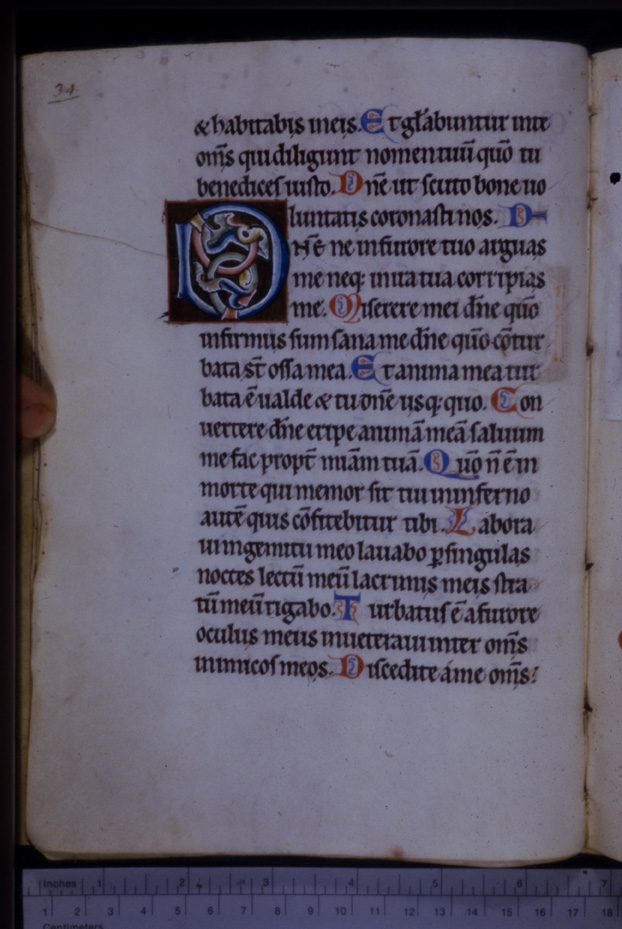 34.
& habitabis in eis. Et gl̄abuntur in te
om̄s qui diligunt nomen tuū quō tu
benedices iusto. Dn̄e ut scuto bone uo
luntatis coronasti nos. D
Dn̄e ne in furore tuo arguas
me neq; in ira tua corripias
me. Miserere mei dn̄e quō
infirmus sum sana me dn̄e quō cōtur
bata st̄ ossa mea. Et anima mea tur
bata ē ualde & tu dn̄e usq; quo. Con
uertere dn̄e eripe animā meā saluum
me fac propt̄ miām tuā. Quō n̄ ē in
morte qui memor sit tui in inferno
autē quis cōfitebitur tibi. Labora
ui in gemitu meo lauabo ꝑ singulas
noctes lectū meū lacrimis meis stra
tū meū rigabo. Turbatus ē a furore
oculus meus inueteraui inter om̄s
inimicos meos. Discedite á me om̄s:
Inches 1 2 3 4 5 6 7
1 2 3 4 5 6 7 8 9 10 11 12 13 14 15 16 17 18
Centimeters